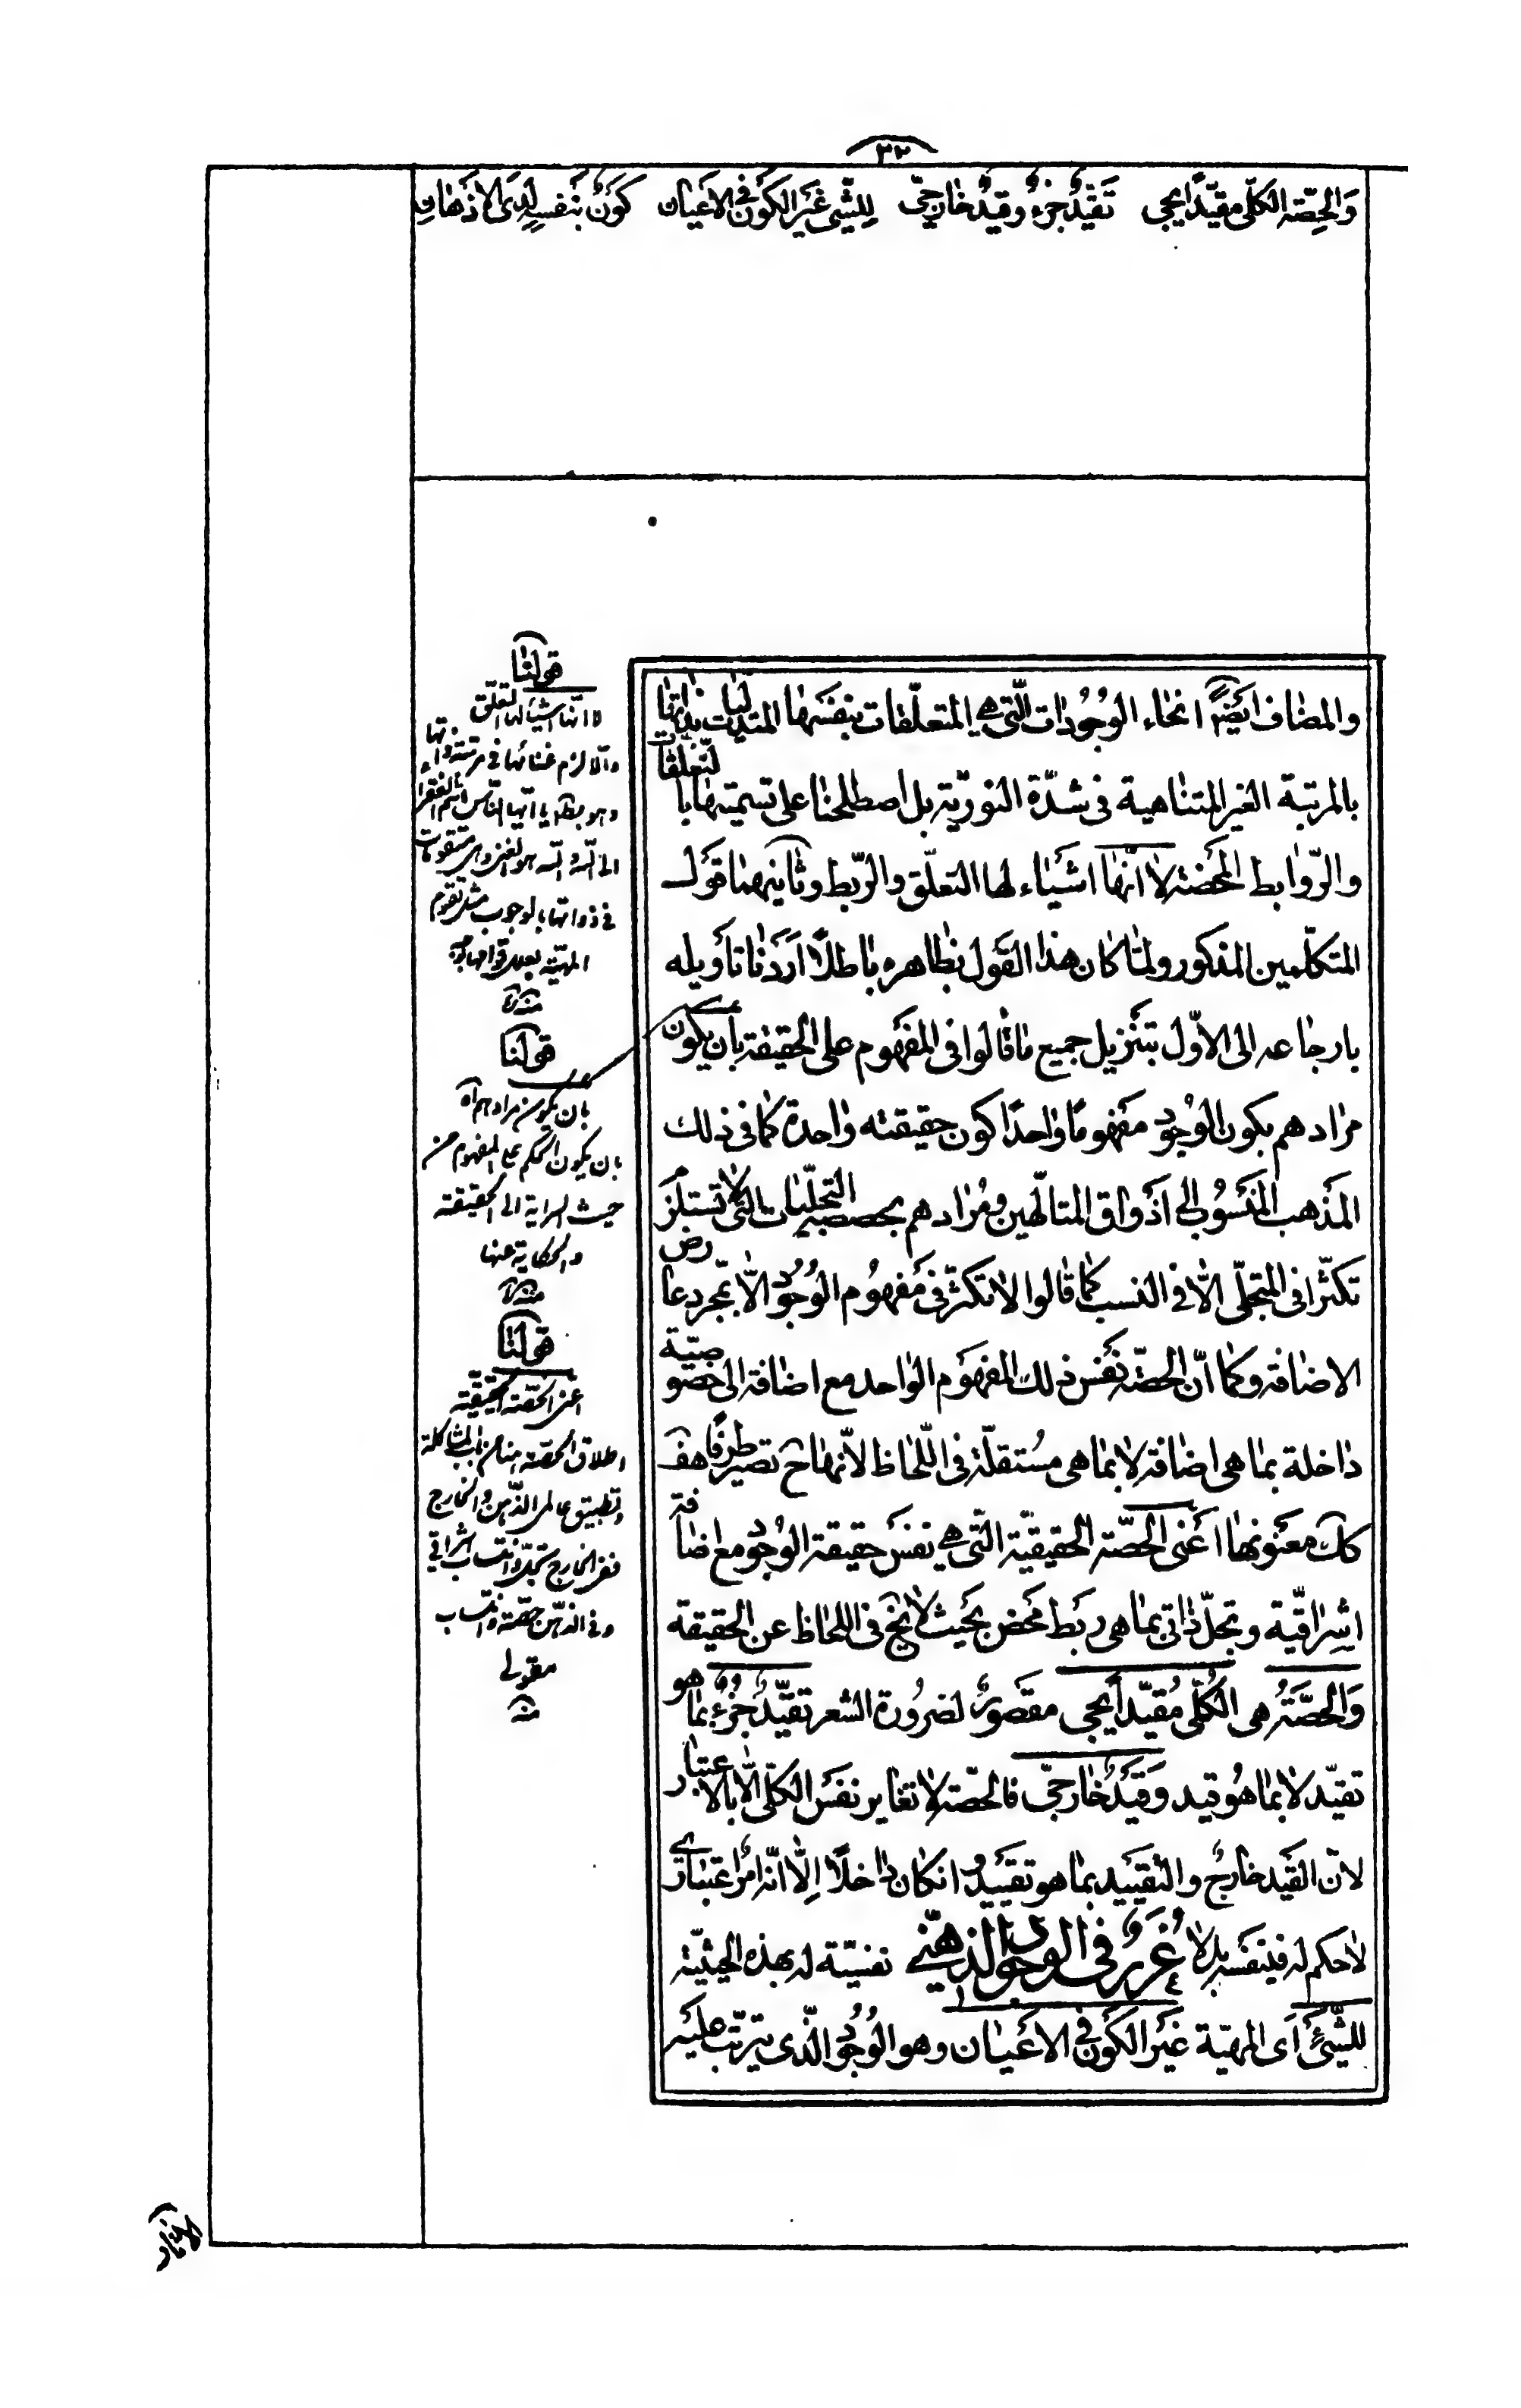 ٣٢
وَالحِصّة الكلّي مقيّداً يجي تَقيّدٌ جزءٌ وقيدٌ خارجيّ للشّيء غير الكون في الاعيان كونٌ بنفسه لدى الاذهان
والمضاف ايضاً انحاء الوجُودات الّتي هي المتعلّقات بنفسها المتدليات بذاتها
بالمرتبة الغير المتناهية في شدّة النوريّة بل اصطلحنا على تسميتها بالتّعلّقات
والرّوابط المحضة لا انّها اشياء لها التعلّق والرّبط وثانيهما قول
المتكلّمين المذكور ولمّا كان هذا القول بظاهره باطلاً اردنا تأويله
بارجاعه الى الاوّل بتنزيل جميع ما قالوا في المفهوم على الحقيقة بان يكون
مرادهم بكون الوجود مفهوماً واحداً كون حقيقته واحدة كما في ذلك
المذهب المنسوب الى اذواق المتالّهين ومُرادهم بحصصه التجلّيات التي لا تستلزم
تكثّرا في المتجلّى الّا في النسب كما قالوا لا تكثّر في مفهُوم الوجُود الّا بمجرد عارض
الاضافة وكما انّ الحصّة نفس ذلك المفهوم الواحد مع اضافة الى خصوصيّة
داخلة بما هي اضافة لا بما هي مُستقلّة في اللّحاظ لانّها ح تصير طرفا هف
كك معنونها اعني الحصّة الحقيقيّة التّي هي نفس حقيقة الوجود مع اضافة
اشراقيّة وتجلّ ذاتي بما هي ربط محض بحيث لا يخ في اللحاظ عن الحقيقة
وَالحصّةُ هي الكُلّي مُقيّداً يجي مقصورٌ لضرُورة الشعر تقيّدٌ جزءٌ بما هو
تقيّد لا بما هُو قيد وَقيدٌ خارجيّ فالحصّة لا تغاير نفس الكلّي الّا بالاعتبار
لانّ القيد خارج والتقييد بما هو تقييدٌ وان كان داخلا اِلّا انّه امر اعتباري
لا حكم له في نفسه بل لا نفسيّة له بهذه الحيثيّة غررٌ في الوجود الذهني
للشّيء اَي المهيّة غير الكون في الاعيان وهو الوُجود الّذي يترتّب عليه
قولنا
لا انّها اشياء لها التعلّق
والّا لزم غنائها في مرتبة ذواتها
وهو بط يا ايّها النّاس انتم الفقراء
الى اللّه واللّه هو الغني وهي متقومات
في ذواتها بالوجوب مثل تقوم
المهيّة بعلل قوامها
منه
قولنا
بان يكون مرادهم اه
بان يكون الحكم على المفهوم من
حيث السراية الى الحقيقة
والحكاية عنها
منه
قولنا
اعني الحصّة الحقيقيّة
اطلاق الحصّة هنا من باب المشاكلة
وتطبيق عالمي الذّهن والخارج
ففي الخارج تجلّ وانتساب اشراقي
وفي الذهن حصّة وانتساب
مقولي
منه
الاثار